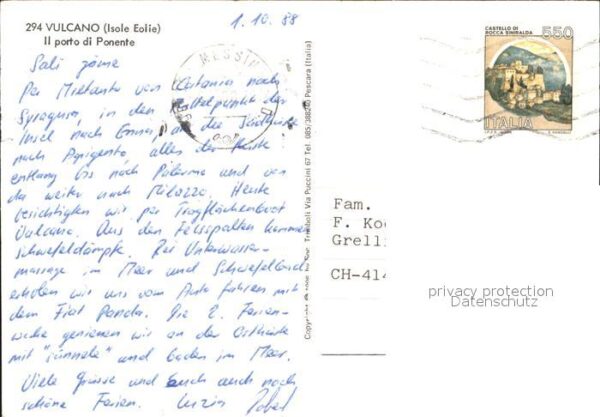 294 VULCANO (Isole Eolie)
Il porto di Ponente
1.10.88
MESSIN
CASTELLO DI
ROCCA SINIBALDA
550
ITALIA
Sali
Per Mietauto von Catania nach
Syragusa, in den Mittelpunkt der
Insel nach Enna, an die Südküste
nach Agrigento, alles der Küste
entlang bis nach Palermo und von
da weiter nach Milazzo. Heute
besichtigten wir per Tragflächenboot
Vulcano. Aus den Felsspalten kommen
Schwefeldämpfe. Bei Unterwasser-
massage im Meer und Schwefelbad
erholen wir uns vom Auto fahren mit
dem Fiat Panda. Die 2. Ferien-
woche geniessen wir an der Ostküste
mit "sünnele" und baden im Meer.
Viele Grüsse und Euch auch noch
schöne Ferien.
Trimboli Via Puccini 67 Tel. 085/ Pescara (Italia)
Fam.
F. Ko
Grelli
CH-414
privacy protection
Datenschutz